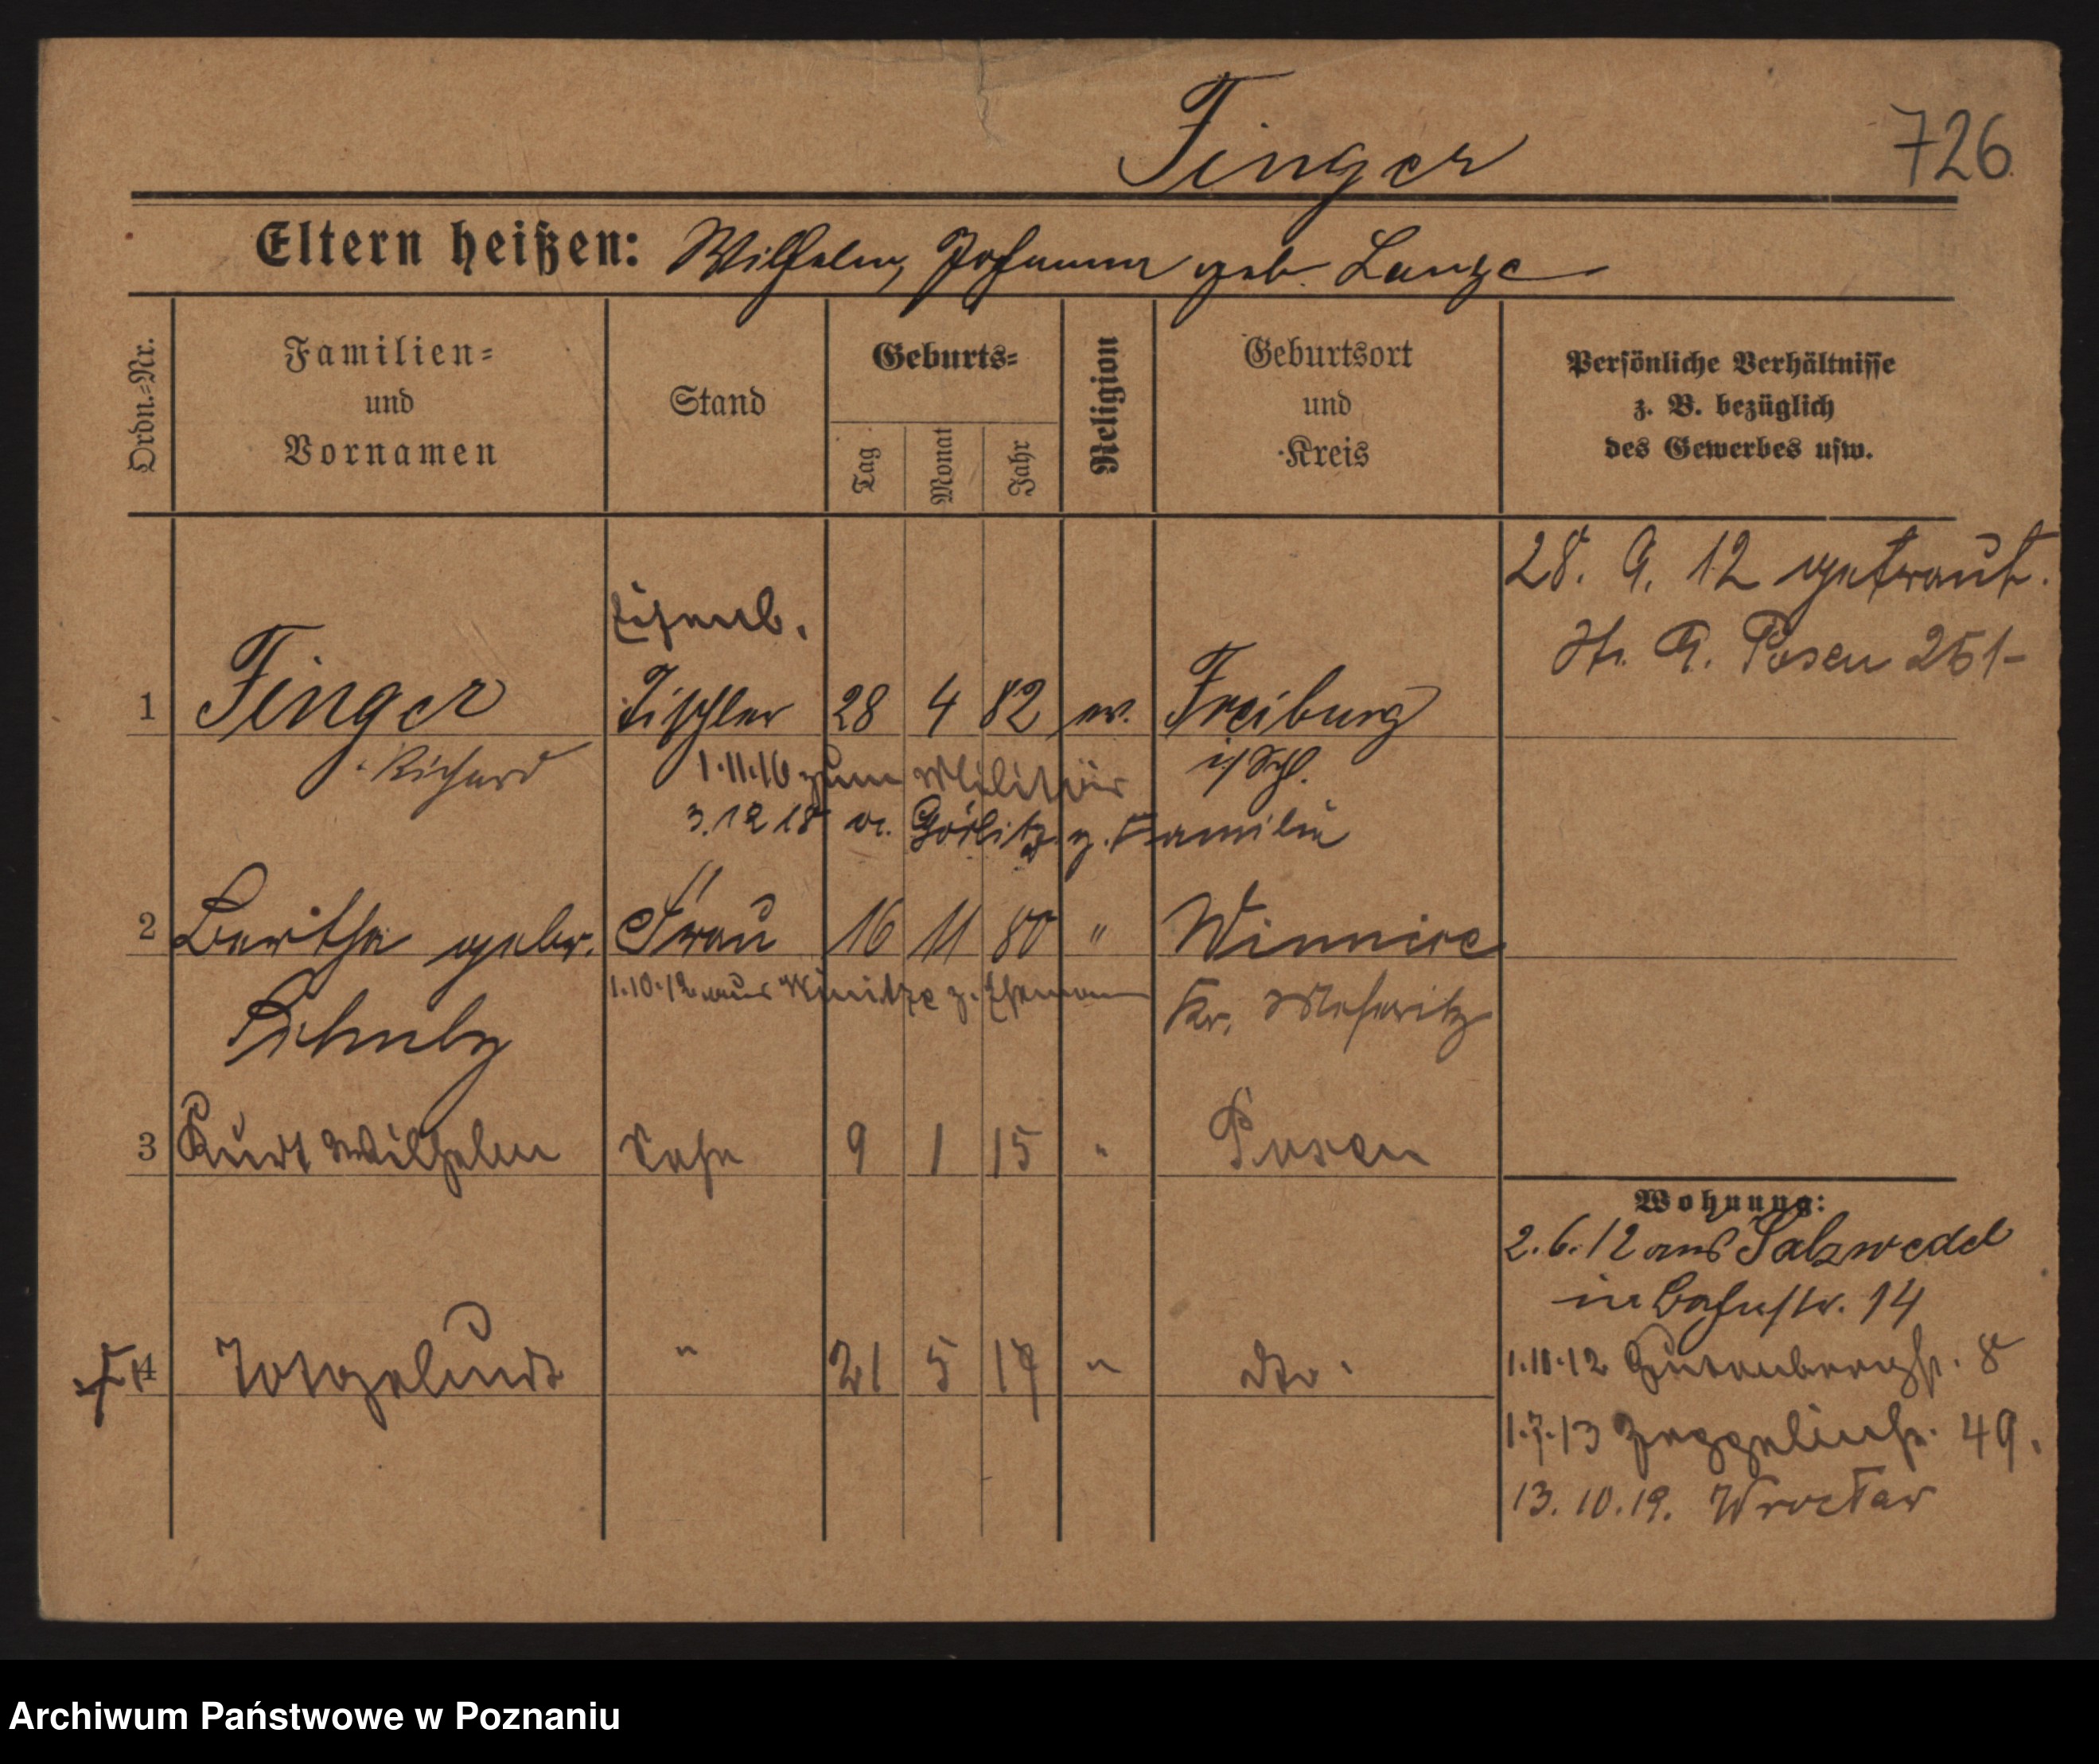 Finger
726
Eltern heißen: Wilhelm, Johanna geb. Lange
Ordn.-Nr.
Familien-
und
Vornamen
Stand
Geburts-
Tag
Monat
Jahr
Religion
Geburtsort
und
Kreis
Persönliche Verhältnisse
z. B. bezüglich
des Gewerbes usw.
28. 9. 12 getraut.
St. A. Posen 251
Eisenb.
1 Finger Tischler 28 4 82 ev. Freiburg
Richard i/Schl.
1.11.16 zum Militär
3.12.18 v. Görlitz z. Familie
2 Bertha gebr. Frau 16 11 80 " Winnice
1.10.12 aus Winitze z. Ehemann
Kr. Meseritz
3 Kurt Wilhelm Sohn 9 1 15 " Posen
4 Totgeburt " 21 5 17 " dto.
Wohnung:
2.6.12 aus Salzwedel
in Bahnstr. 14
1.10.12 Gutenbergstr. 8
1.7.13 Zeppelinstr. 49.
13.10.19. Wrocław
Archiwum Państwowe w Poznaniu